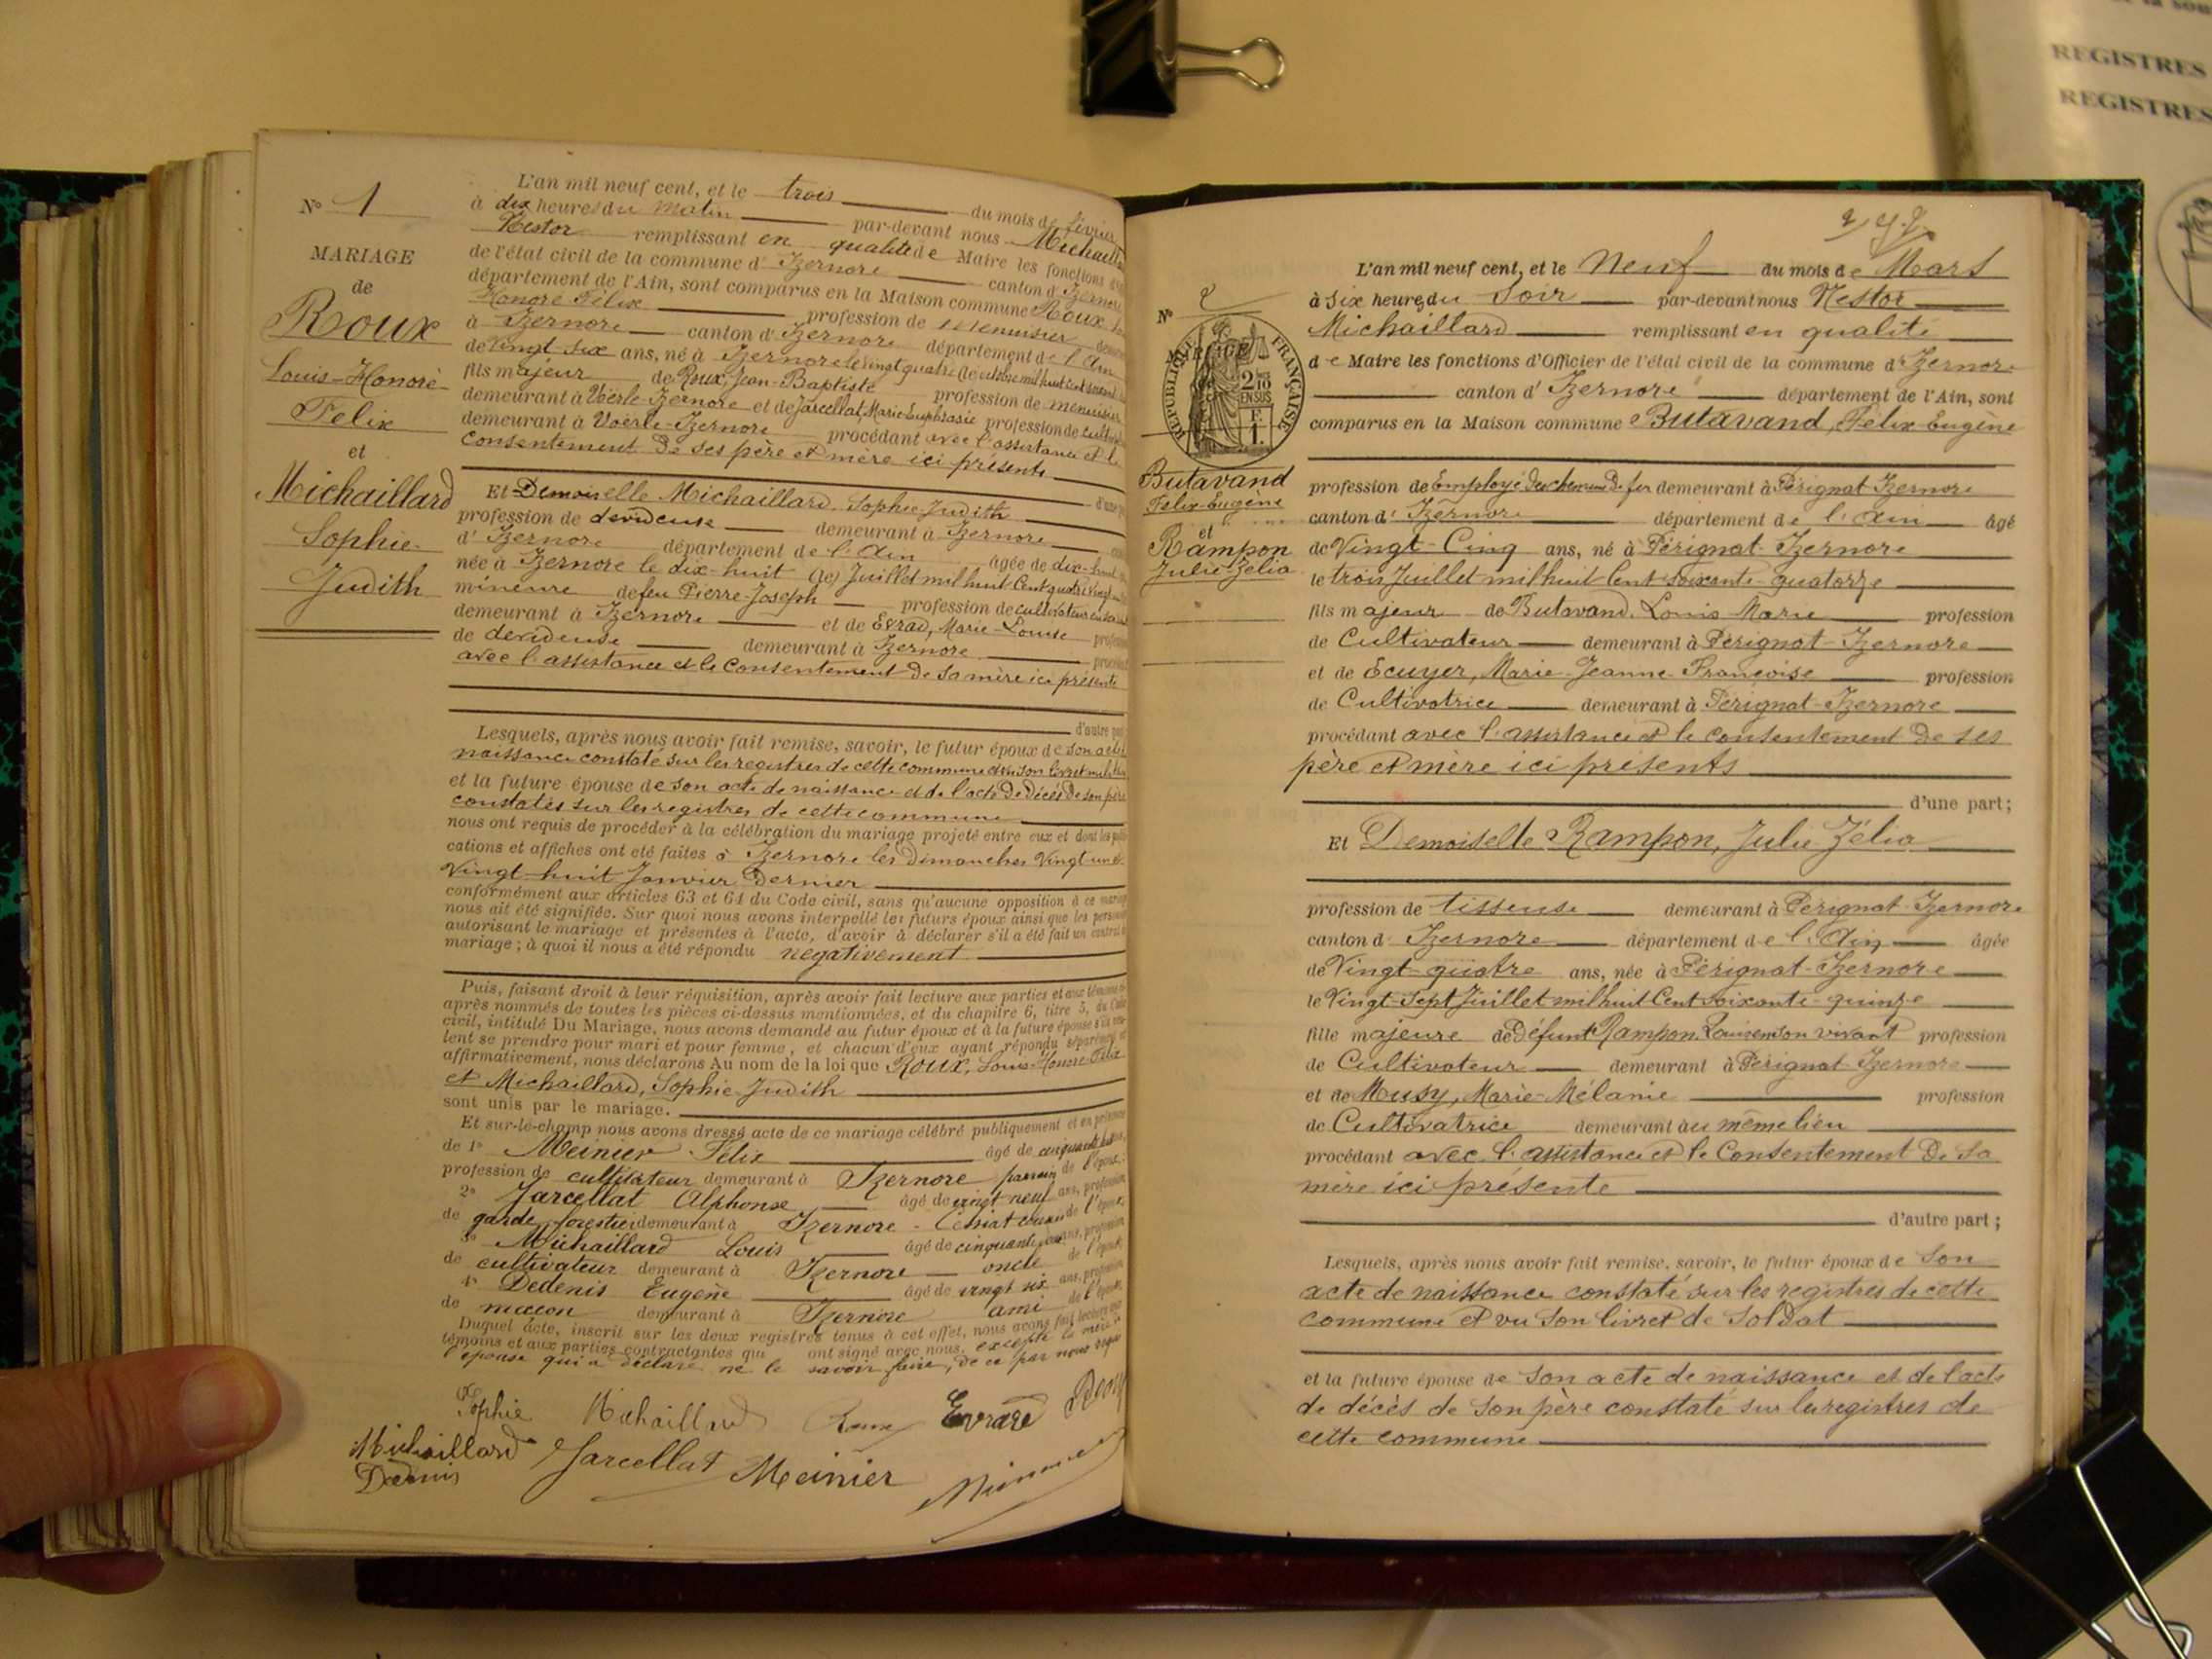 N° 1
MARIAGE
de
Roux
Louis-Honoré
Felix
et
Michaillard
Sophie
Judith
L'an mil neuf cent, et le trois du mois de février
à dix heures du matin par-devant nous Michaill
Nestor remplissant en qualité de Maire les fonctions
de l'état civil de la commune d' Izernore canton d' Izernore
département de l'Ain, sont comparus en la Maison commune Roux
Honoré Félix profession de menuisier
à Izernore canton d' Izernore département de l'Ain
de vingt six ans, né à Izernore le vingt quatre octobre mil huit cent
fils majeur de Roux, Jean-Baptiste profession de menuisier
demeurant à Voërle-Izernore et de Jarcellat, Marie Euphrasie profession de
demeurant à Voërle-Izernore procédant avec l'assistance et le
consentement de ses père et mère ici présents
Et Demoiselle Michaillard, Sophie Judith
profession de devideuse demeurant à Izernore
d' Izernore département de l'Ain âgée de dix-huit
née à Izernore le dix-huit Juillet mil huit Cent quatre
mineure de feu Pierre-Joseph profession de cultivateur
demeurant à Izernore et de Evrad, Marie-Louise
de devideuse demeurant à Izernore
avec l'assistance et le Consentement de sa mère ici présente
d'autre part
Lesquels, après nous avoir fait remise, savoir, le futur époux de son acte
naissance constaté sur les registres de cette commune et vu son livret
et la future épouse de son acte de naissance et de l'acte de décès de son père
constatés sur les registres de cette commune
nous ont requis de procéder à la célébration du mariage projeté entre eux et dont les publi
cations et affiches ont été faites à Izernore les dimanches vingt un et
vingt-huit Janvier dernier
conformément aux articles 63 et 64 du Code civil, sans qu'aucune opposition à ce mariage
nous ait été signifiée. Sur quoi nous avons interpellé les futurs époux ainsi que les personnes
autorisant le mariage et présentes à l'acte, d'avoir à déclarer s'il a été fait un contrat de
mariage ; à quoi il nous a été répondu négativement
Puis, faisant droit à leur réquisition, après avoir fait lecture aux parties et aux témoins
après nommés de toutes les pièces ci-dessus mentionnées, et du chapitre 6, titre 5, du Code
civil, intitulé Du Mariage, nous avons demandé au futur époux et à la future épouse s'ils veu
lent se prendre pour mari et pour femme, et chacun d'eux ayant répondu séparément et
affirmativement, nous déclarons Au nom de la loi que Roux, Louis-Honoré-Félix
et Michaillard, Sophie-Judith
sont unis par le mariage.
Et sur-le-champ nous avons dressé acte de ce mariage célébré publiquement et en présence
de 1° Meinier Félix âgé de
profession de cultivateur demeurant à Izernore parrain de l'époux
2° Jarcellat Alphonse âgé de vingt neuf ans, profession
de garde forestier demeurant à Izernore - Ceissiat cousin de l'époux
3° Michaillard Louis âgé de cinquante ans, profession
de cultivateur demeurant à Izernore oncle de l'épouse
4° Dedenis Eugène âgé de vingt six ans, profession
de maçon demeurant à Izernore ami de l'épouse
Duquel acte, inscrit sur les deux registres tenus à cet effet, nous avons fait lecture aux
témoins et aux parties contractantes qui ont signé avec nous, excepté la mère de
l'épouse qui a déclaré ne le savoir faire, de ce par nous requis
Sophie Michaillard Roux Evrard Roux
Michaillard Jarcellat Meinier
Dedenis
N° 2
RÉPUBLIQUE FRANÇAISE
2/10 EN SUS
F 1
Butavand
Felix-Eugène
et
Rampon
Julie-Zélia
L'an mil neuf cent, et le Neuf du mois de Mars
à six heures du soir par-devant nous Nestor
Michaillard remplissant en qualité
de Maire les fonctions d'Officier de l'état civil de la commune d' Izernore
canton d' Izernore département de l'Ain, sont
comparus en la Maison commune Butavand, Félix-Eugène
profession de Employé de chemin de fer demeurant à Pérignat-Izernore
canton d' Izernore département de l'Ain âgé
de Vingt-Cinq ans, né à Pérignat-Izernore
le trois Juillet mil huit Cent soixante-quatorze
fils majeur de Butavand, Louis Marie profession
de Cultivateur demeurant à Pérignat-Izernore
et de Ecuyer, Marie-Jeanne-Françoise profession
de Cultivatrice demeurant à Pérignat-Izernore
procédant avec l'assistance et le consentement de ses
père et mère ici présents
d'une part ;
Et Demoiselle Rampon, Julie Zélia
profession de tisseuse demeurant à Pérignat-Izernore
canton d' Izernore département de l'Ain âgée
de Vingt-quatre ans, née à Pérignat-Izernore
le Vingt-Sept Juillet mil huit Cent soixante-quinze
fille majeure de Défunt Rampon Louis en son vivant profession
de Cultivateur demeurant à Pérignat-Izernore
et de Musy, Marie-Mélanie profession
de Cultivatrice demeurant au même lieu
procédant avec l'assistance et le Consentement de sa
mère ici présente
d'autre part ;
Lesquels, après nous avoir fait remise, savoir, le futur époux de son
acte de naissance constaté sur les registres de cette
commune et vu son livret de soldat
et la future épouse de son acte de naissance et de l'acte
de décès de son père constaté sur les registres de
cette commune
REGISTRES
REGISTRES